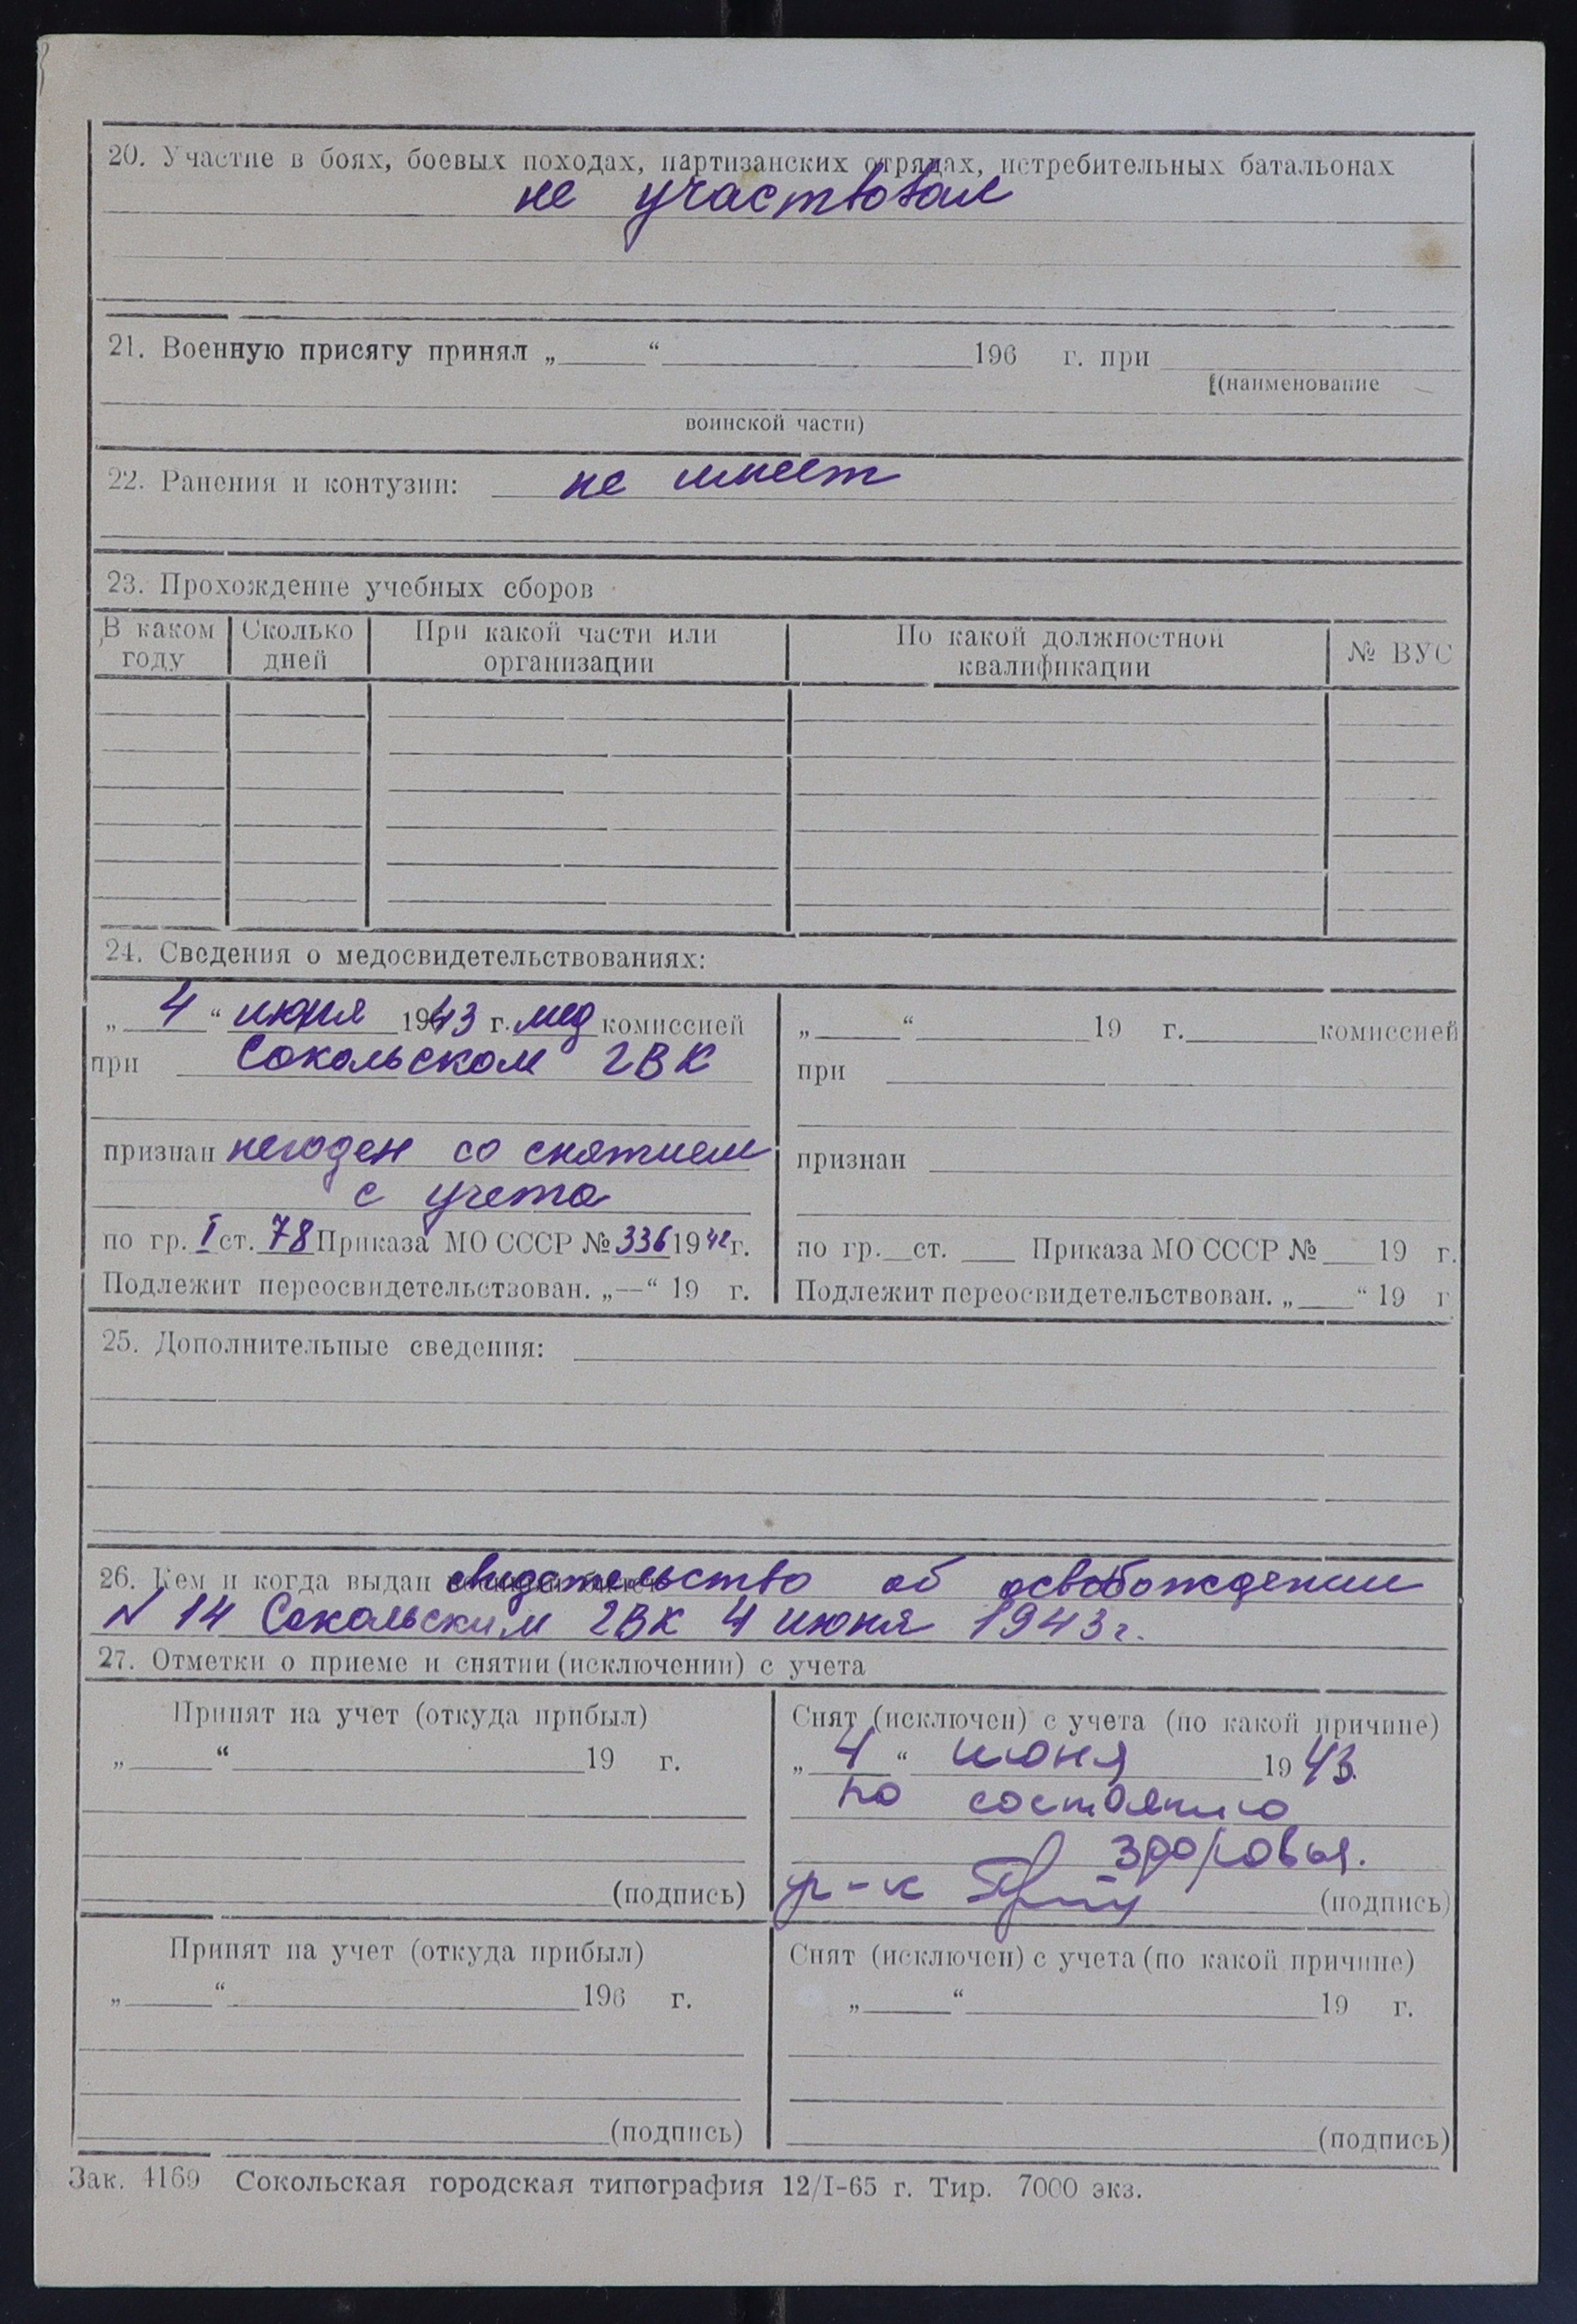 20. Участие в боях, боевых походах, партизанских отрядах, истребительных батальонах
не участвовал
21. Военную присягу принял „ “ 196 г. при
(наименование
воинской части)
22. Ранения и контузии: не имеет
23. Прохождение учебных сборов
В каком году | Сколько дней | При какой части или организации | По какой должностной квалификации | № ВУС
24. Сведения о медосвидетельствованиях:
„ 4 “ июня 1943 г. мед комиссией
при Сокольском ГВК
признан негоден со снятием
с учета
по гр. I ст. 78 Приказа МО СССР № 336 1942 г.
Подлежит переосвидетельствован. „—“ 19 г.
„ “ 19 г. комиссией
при
признан
по гр. ст. Приказа МО СССР № 19 г.
Подлежит переосвидетельствован. „ “ 19 г
25. Дополнительные сведения:
26. Кем и когда выдан свидетельство об освобождении
N 14 Сокольским ГВК 4 июня 1943 г.
27. Отметки о приеме и снятии (исключении) с учета
Принят на учет (откуда прибыл)
„ “ 19 г.
(подпись)
Снят (исключен) с учета (по какой причине)
„ 4 “ июня 1943.
по состоянию
здоровья.
(подпись)
Принят на учет (откуда прибыл)
„ “ 196 г.
(подпись)
Снят (исключен) с учета (по какой причине)
„ “ 19 г.
(подпись)
Зак. 4169 Сокольская городская типография 12/I-65 г. Тир. 7000 экз.